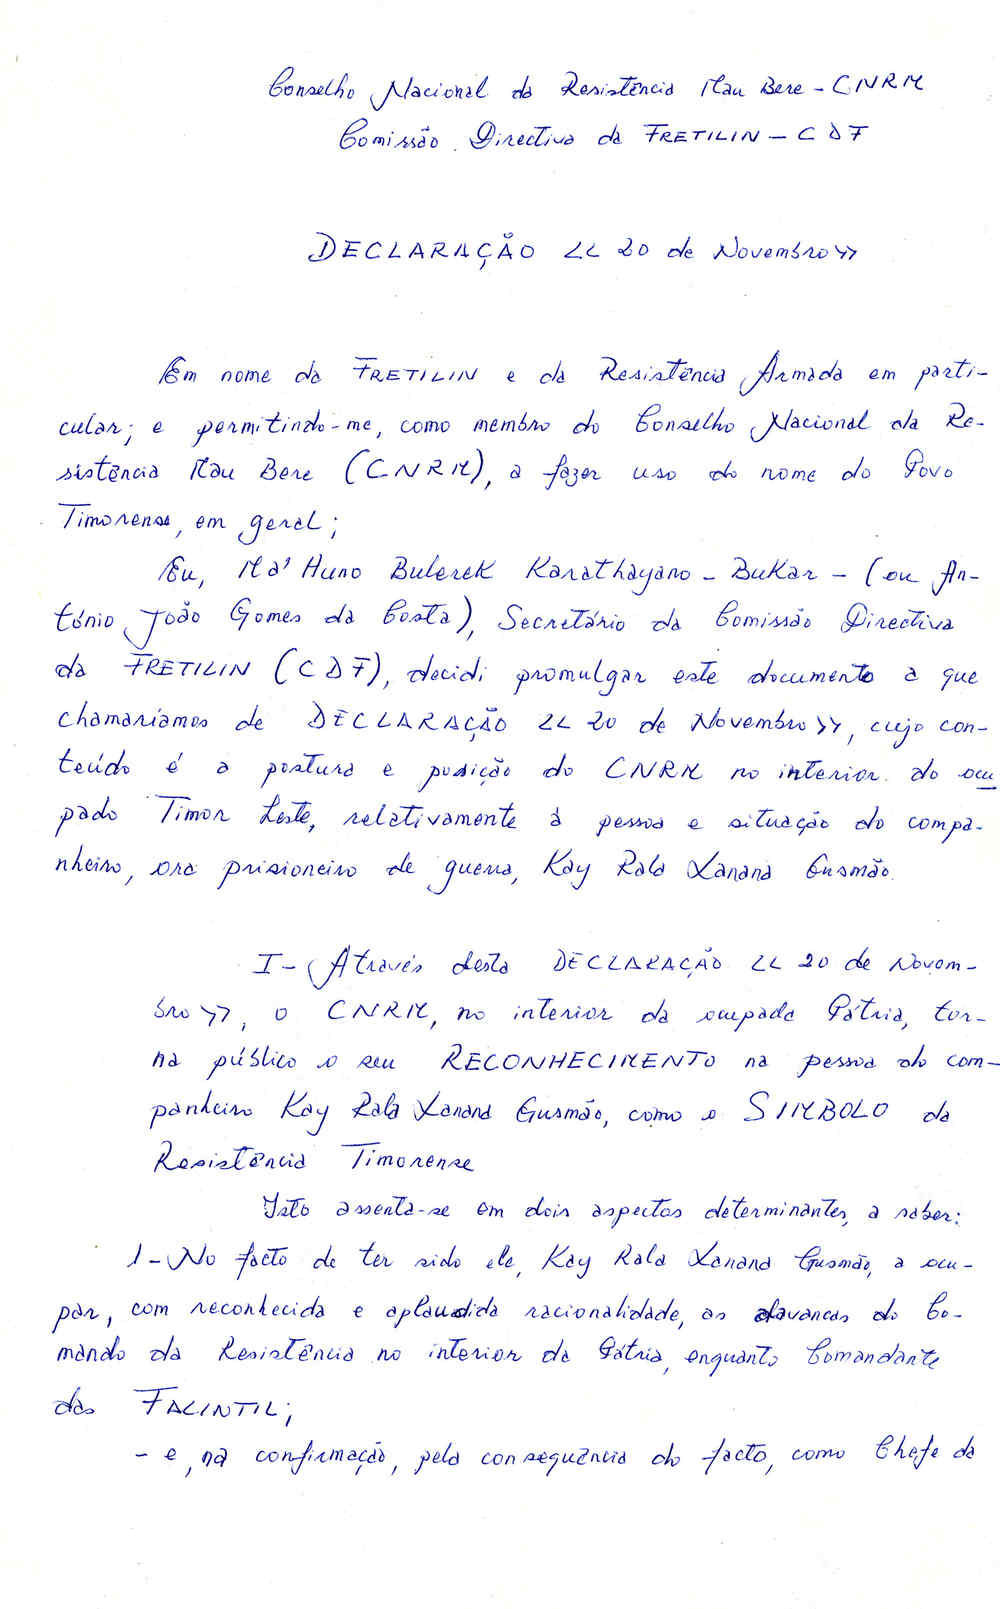 Conselho Nacional da Resistência Mau Bere - CNRM
Comissão Directiva da FRETILIN - CDF
DECLARAÇÃO << 20 de Novembro >>
Em nome da FRETILIN e da Resistência Armada em parti-
cular; e permitindo-me, como membro do Conselho Nacional da Re-
sistência Mau Bere (CNRM), a fazer uso do nome do Povo
Timorense, em geral;
Eu, Ma' Huno Bulerek Karathayano - Bukar - (ou An-
tónio João Gomes da Costa), Secretário da Comissão Directiva
da FRETILIN (CDF), decidi promulgar este documento a que
chamaríamos de DECLARAÇÃO << 20 de Novembro >>, cujo con-
teúdo é a postura e posição do CNRM no interior do ocu
pado Timor Leste, relativamente à pessoa e situação do compa-
nheiro, ora prisioneiro de guerra, Kay Rala Xanana Gusmão.
I - Através desta DECLARAÇÃO << 20 de Novem-
bro >>, o CNRM, no interior da ocupada Pátria, tor-
na público o seu RECONHECIMENTO na pessoa do com-
panheiro Kay Rala Xanana Gusmão, como o SIMBOLO da
Resistência Timorense
Isto assenta-se em dois aspectos determinantes, a saber:
1 - No facto de ter sido ele, Kay Rala Xanana Gusmão, a ocu-
par, com reconhecida e aplaudida racionalidade, as alavancas do Co-
mando da Resistência no interior da Pátria, enquanto Comandante
das FALINTIL;
- e, na confirmação, pela consequência do facto, como Chefe da